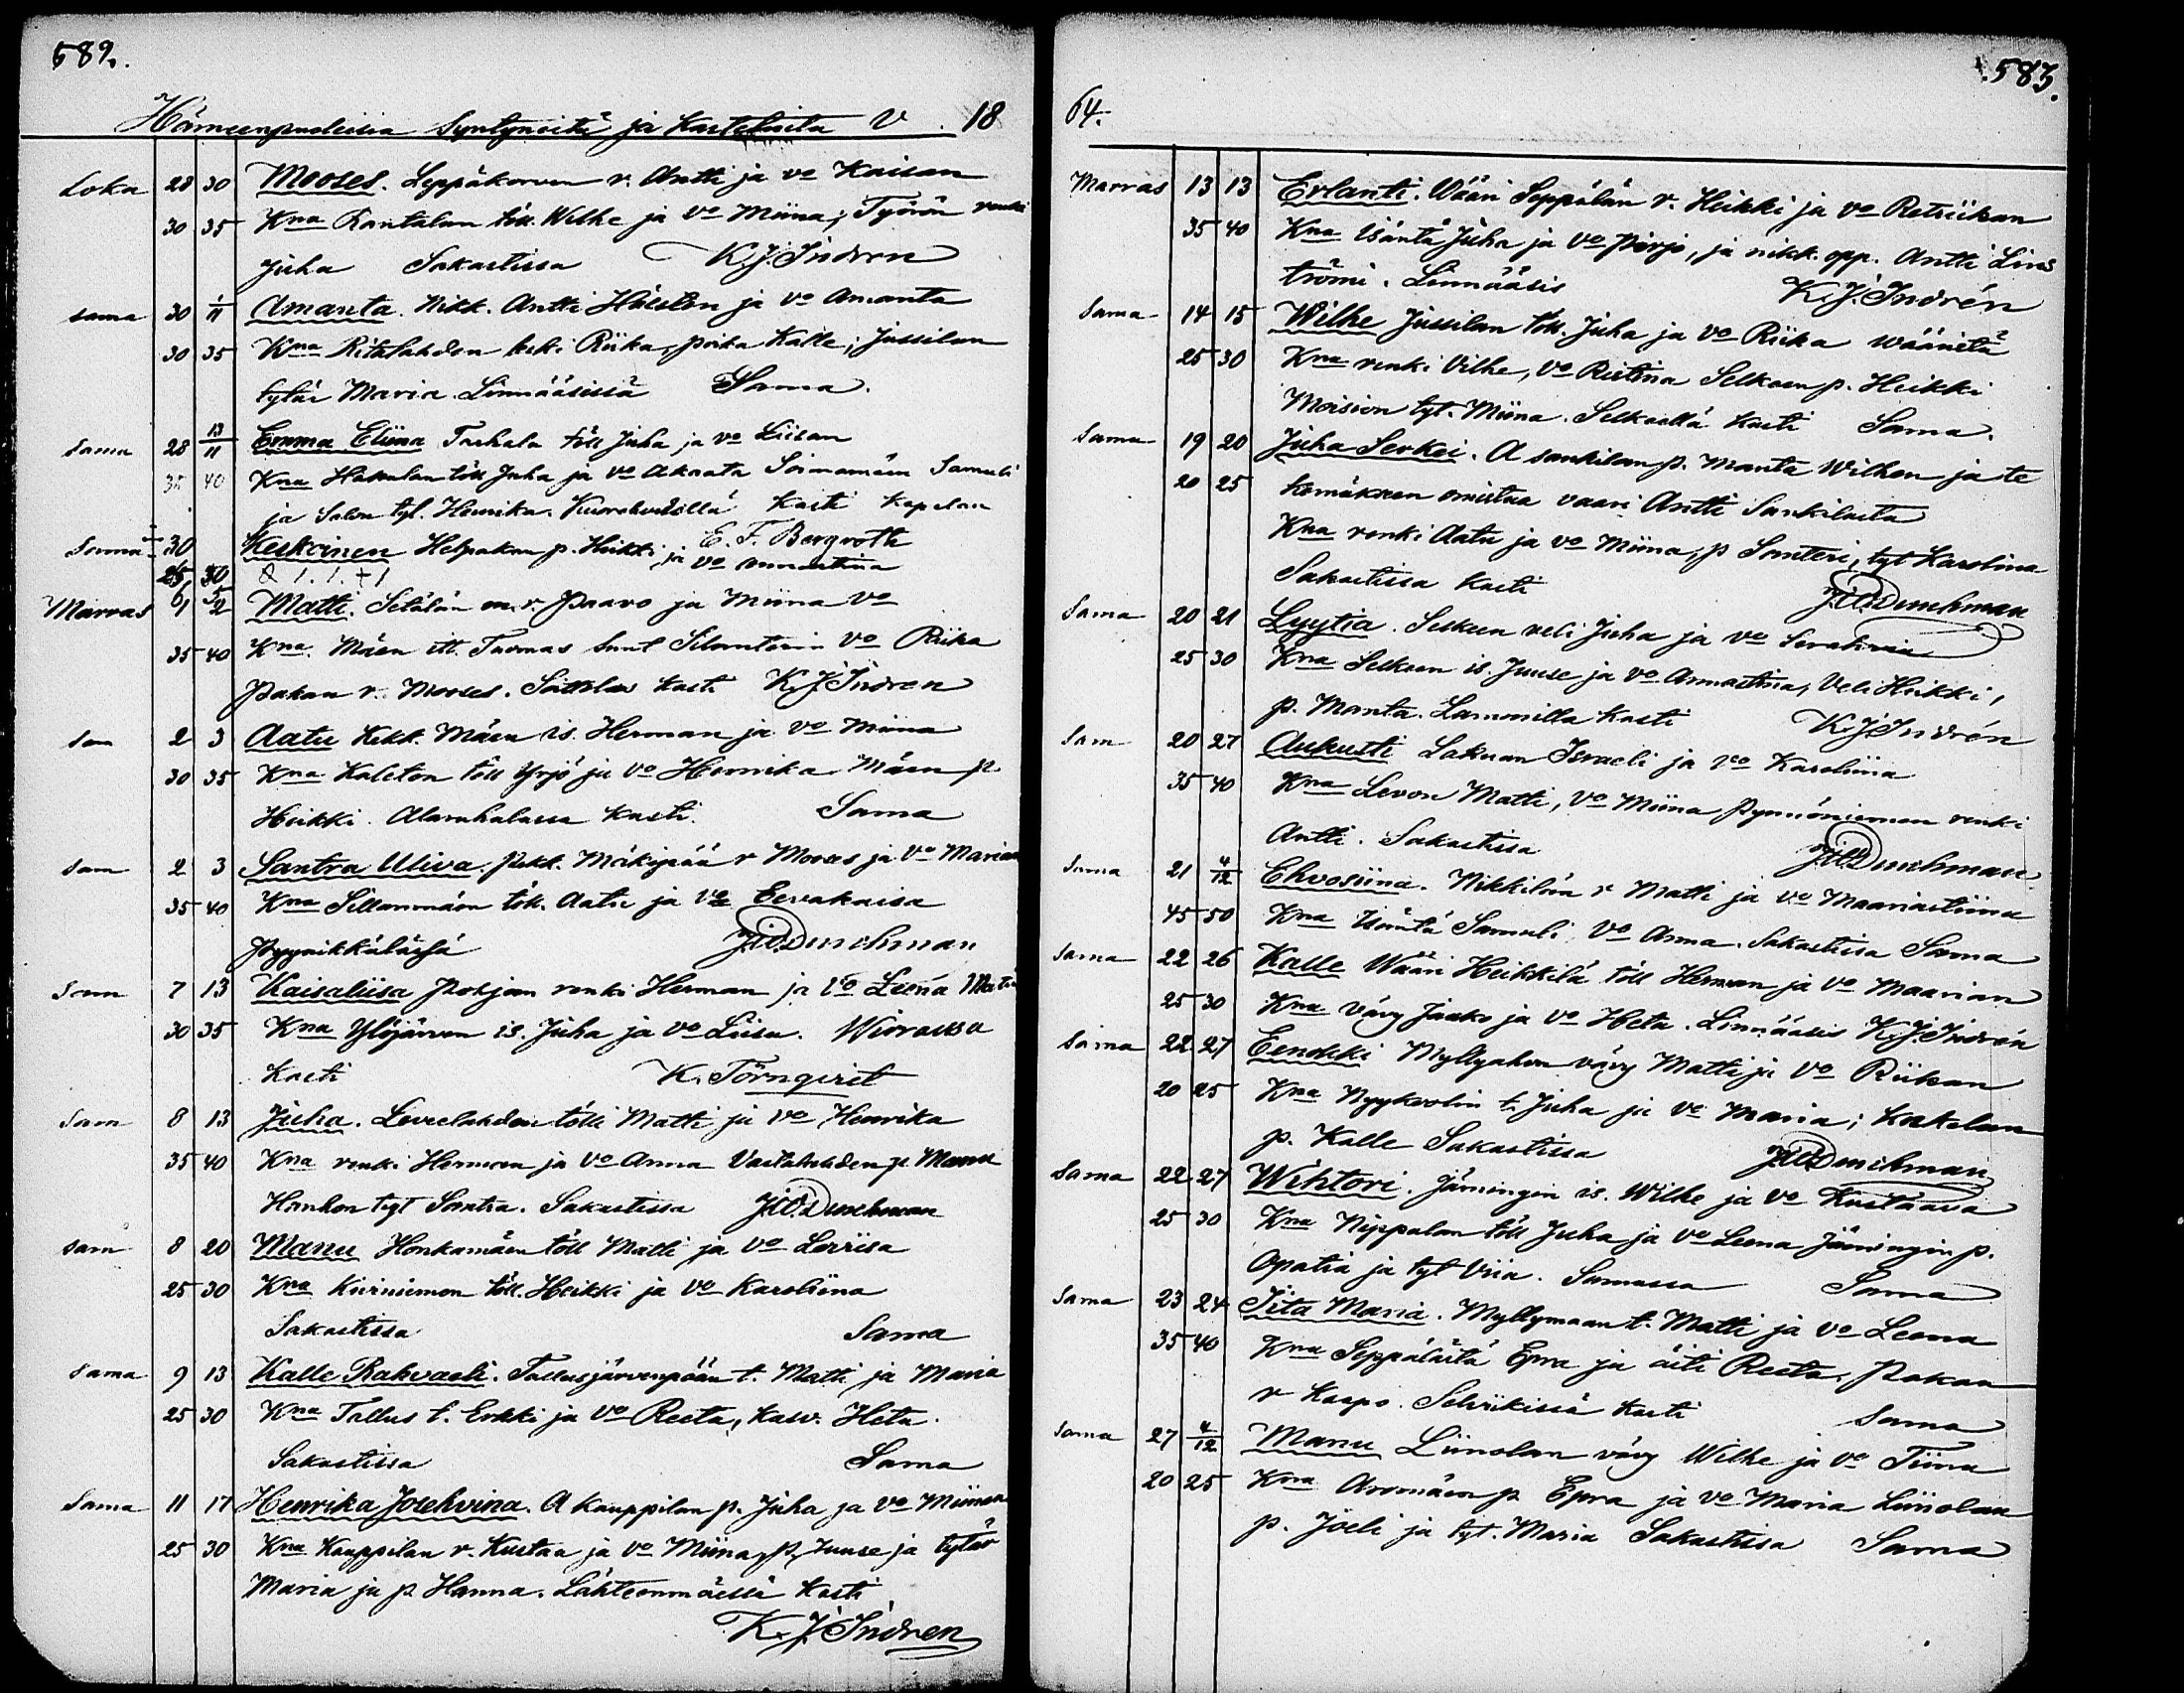 589.
Hämeenpuolisia Syntyneitä ja Kastetuita V. 18
Loka 28 30 Mooses. Leppäkorven r. Antti ja vo Kaisan
30 35 Kna Rantalan töll. Wilhe ja Vo Miina; Työrön renki
Juha Sakastissa K.J. Indren
sama 30 1/11 Amanta. Nikk. Antti ja vo Amanta
30 35 Kna Ritalahden leski Riika, poika Kalle; Jussilan
tytär Maria. Linnääsissä Sama.
Sama 28 13/11 Emma Eliina Tarhala töll Juha ja vo Liisan
35 40 Kna Hakulan töll Juha ja vo Akaata Samuli
ja Salon tyt. Henrika. Kasti Kapelan
E. F. Bergroth
Sama 30 Keskoinen Helpakan p. Heikki ja vo Annastina
25 30
Marras 1 2 Matti. Setälän en. r. Paavo ja Miina vo
35 40 Kna. Mäen itt. Tuomas Vo Riika
Pakan r. Mooses. kasti K.J. Indren
Sam 2 3 Aatu Kekk. Mäen is. Herman ja vo Miina
30 35 Kna Kaleton töll Yrjö ja Vo Henrika Mäen p
Heikki. Alasuhalassa kasti. Sama
Sam 2 3 Santra Uliva. Pekk. Mäkipää r Mooses ja Vo Marian
35 40 Kna Sillanmäen töll. Aatu ja Vo Eevakaisa
Pyynikkälässä J.O. Dunckman
Sam 7 13 Kaisaliisa Pohjan renki Herman ja Vo Leena
30 35 Kna Ylöjärven is. Juha ja Vo Liisa.
Kasti K. Törnqvist
Sam 8 13 Juha. Leveelahden tölli Matti ja Vo Henrika
35 40 Kna renki Herman ja Vo Anna Vastalahden p. Manu
Hanhon tyt Santra. Sakastissa J.O. Dunckman
Sam 8 20 Manu Honkamäen töll Matti ja Vo Lovisa
25 30 Kna Kurniemen töll. Heikki ja Vo Karoliina
Sakastissa Sama
Sama 9 13 Kalle Rahvaeli. Tallusjärvenpään t. Matti ja Maria
25 30 Kna Tallus t. Erkki ja Vo Reeta, kasv. Heta.
Sakastissa Sama
Sama 11 17 Henrika Josehvina. A Kauppilan p. Juha ja Vo Miinan
25 30 Kna Kauppilan r. Kustaa ja Vo Miina, p. Juuse ja tytär
Maria ja p. Hanna. Lähteenmäellä kasti
K. J. Indren
583.
64.
Marras 13 13 Erlanti. Wääri Seppälän r. Heikki ja vo Retriikan
35 40 Kna isäntä Juha ja Vo Pirjo, ja nikk. opp. Antti Lins
trömi. Linnääsis K.J. Indrén
Sama 14 15 Wilhe Jussilan töll. Juha ja Vo Riika
25 30 Kna renki Vilhe, Vo Ristina Selkeen p. Heikki
Moision tyt. Miina. Selkeellä kasti Sama.
Sama 19 20 Juha Serkei. A sankilan p. Manta Wilhen ja te
20 25 komäkeen omistaa vaari Antti Sankilasta
Kna renki Aatu ja vo Miina, p Santeri, tyt Karolina
Sakastissa kasti J.O. Dunckman
Sama 20 21 Lyytia. Selkeen veli Juha ja vo Serahvia
25 30 Kna Selkeen is. Juuse ja Vo Annastina, Veli Heikki,
p. Manta. Lammilla kasti K.J. Indrén
Sam 20 27 Aukusti Lakuan Israeli ja vo Karoliina
35 40 Kna Levon Matti, Vo Miina Pynnöniemen renki
Antti. Sakastissa J.O. Dunckman
Sama 21 4/12 Ehvosiina. Nikkilän r Matti ja vo Maariastiina
45 50 Kna Isäntä Samuli, Vo Anna. Sakastissa Sama
Sama 22 26 Kalle Wääri Heikkilä töll Herman ja Vo Maarian
25 30 Kna vävy Jaako ja Vo Heta. Linnääsis K.J. Indrén
Sama 22 27 Eenokki Myllyahon vävy Matti ja Vo Riikan
20 25 Kna Nyykvolin t. Juha ja vo Maria; Kaakelan
p. Kalle Sakastissa J.O. Dunckman
Sama 22 27 Wihtori. Jäminigin is. Wilhe ja Vo Kustaava
25 30 Kna Nippalan töll Juha ja Vo Leena Jämingin p.
Opatia ja tyt Viia. Samassa Sama
Sama 23 24 Iita Maria. Myllymaan t. Matti ja Vo Leena
35 40 Kna Seppälästä Epra ja äiti Reeta, Pakan
r Kaapo. Selvikissä kasti Sama
Sama 27 4/12 Manu Liinolan vävy Wilhe ja Vo Tiina
20 25 Kna Aromäen p Epra ja vo Maria Liinolan
p. Joeli ja tyt. Maria Sakastissa Sama